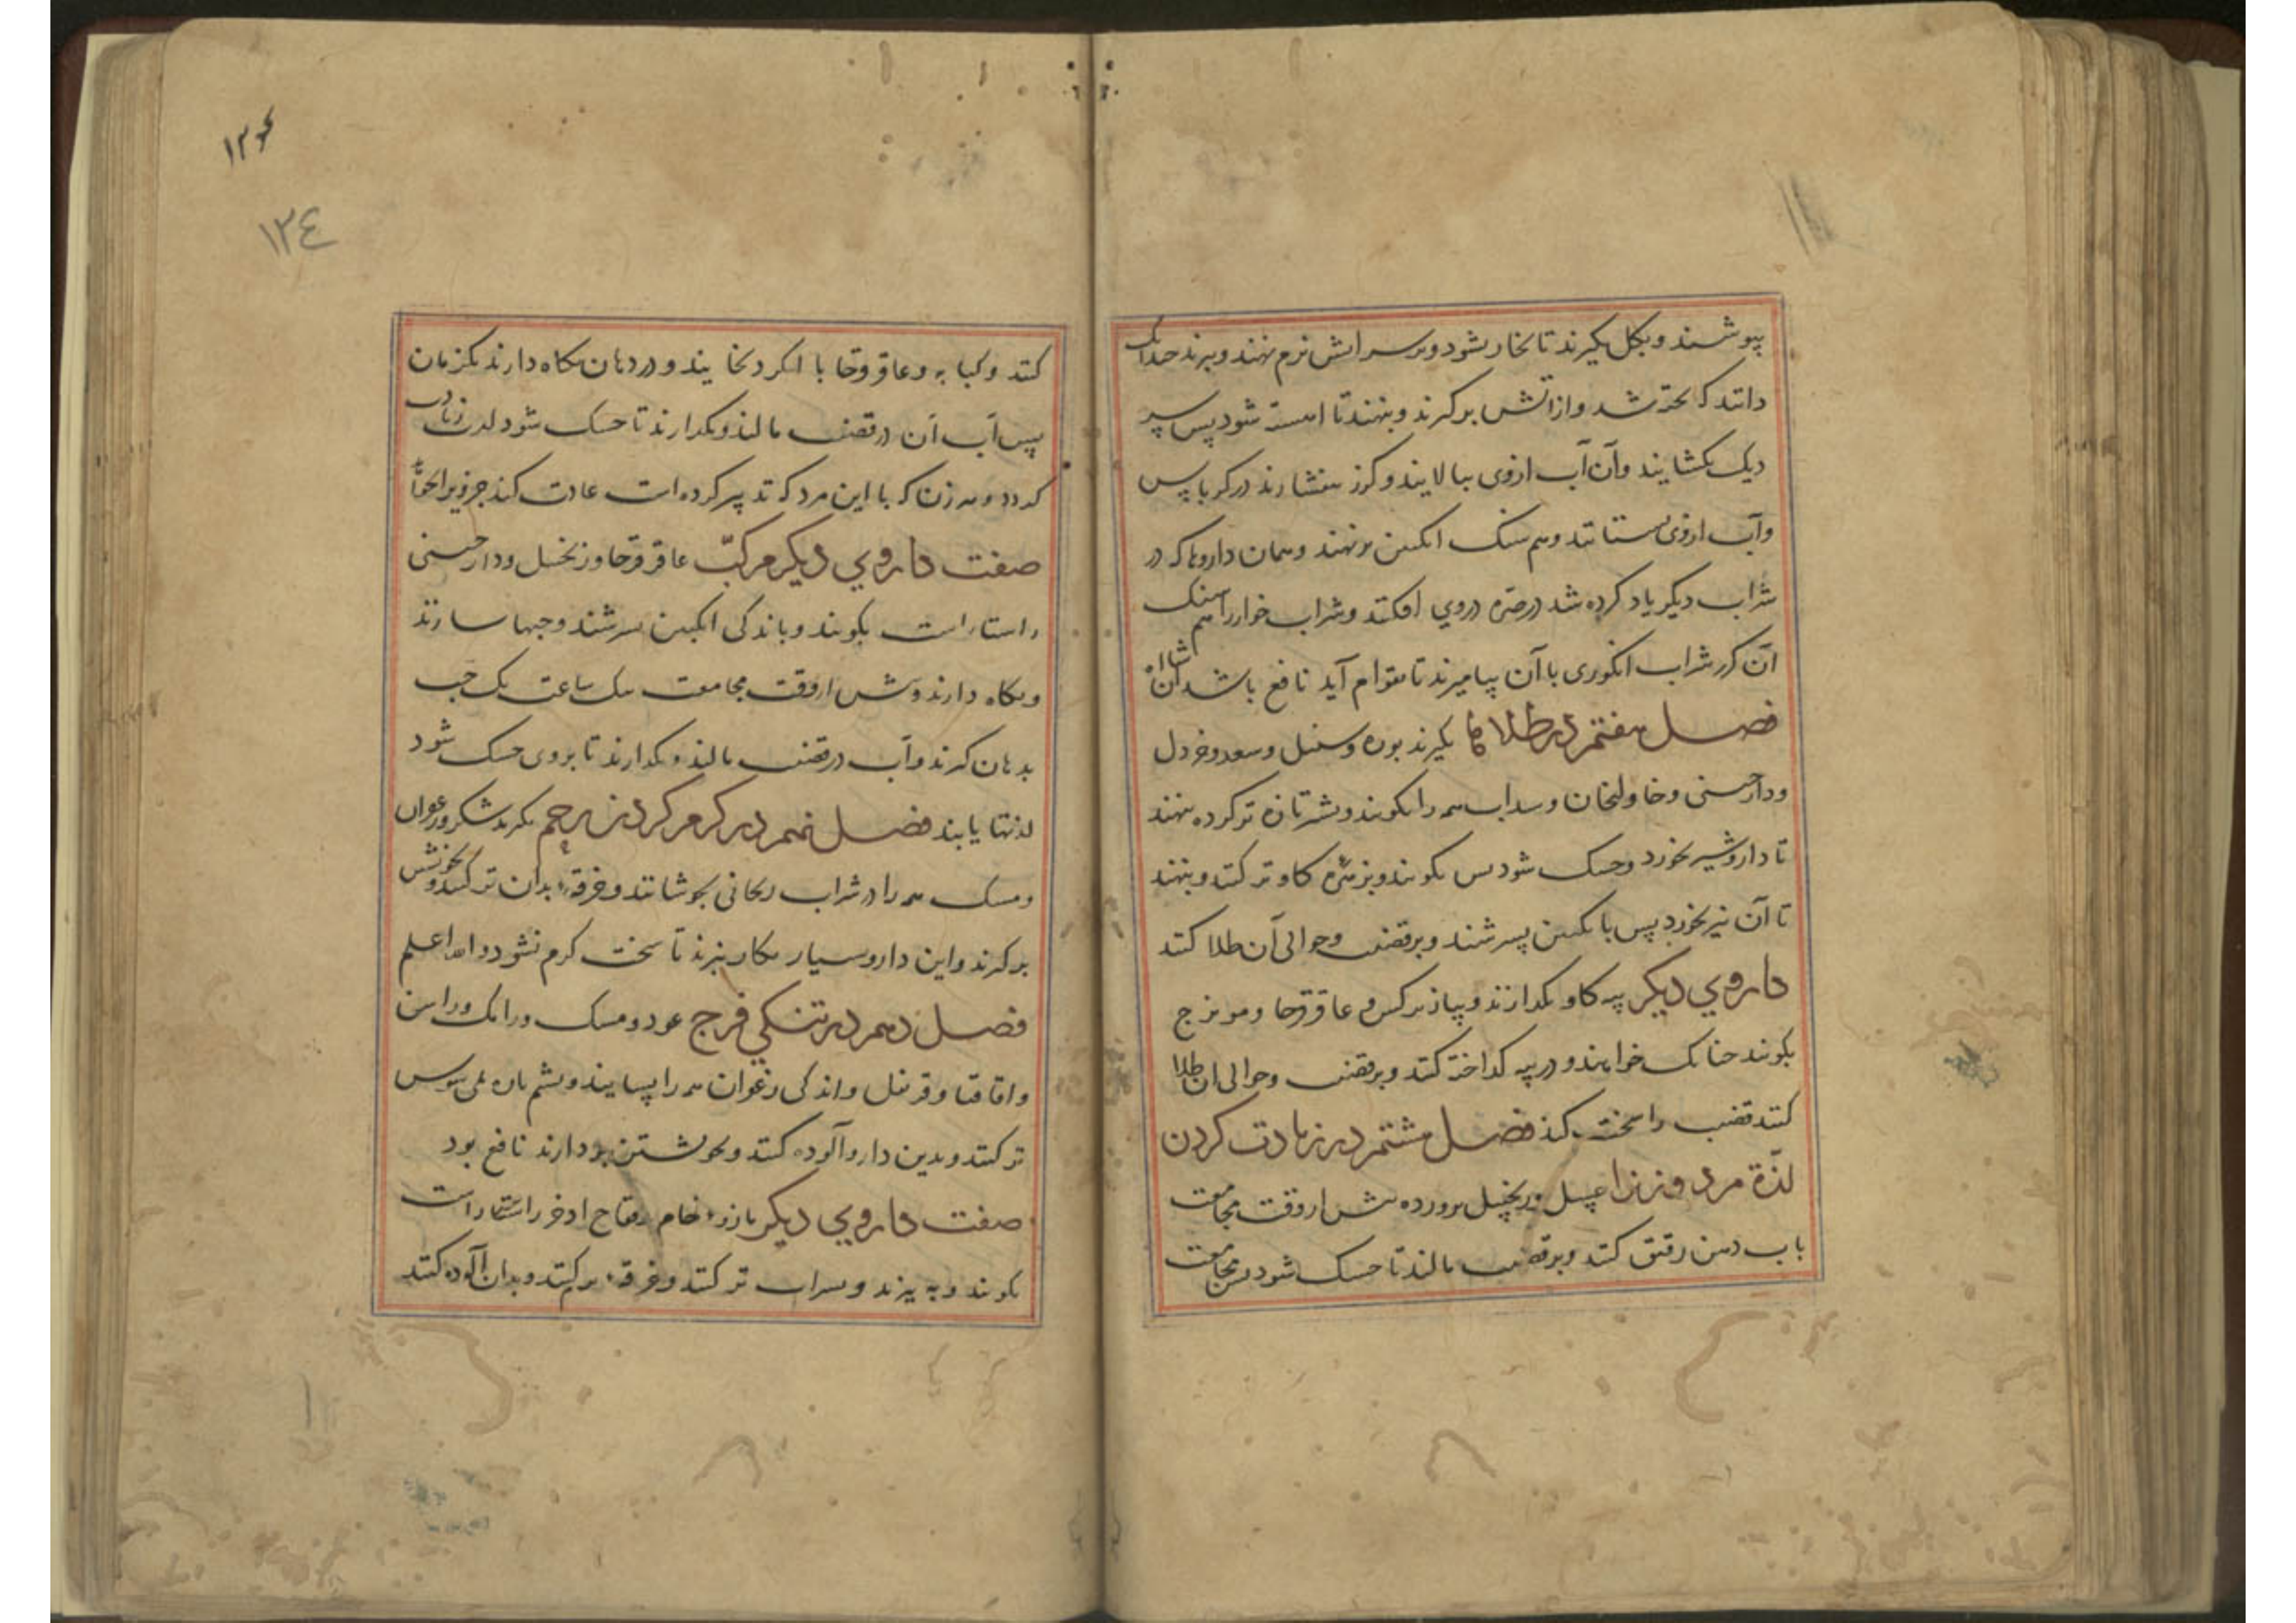 بپوشند و بکل بگیرند تا بخار نشود و بر سر آتش نرم نهند و بپزند چندانک
دانند که پخته شد و از آتش برگیرند و بنهند تا آهسته شود پس سر
دیک بکشایند و آن آب ازوی ببالایند و کزر بیفشارند در کرباس
و آب ازوی بستانند و هم سنک انکبین برنهند و همان داروها که در
شراب دیگر یاد کرده شد در صره دروی افکنند و شراب خوار را هم سنک
آن کزر شراب انکوری با آن بیامیزند تا بقوام آید نافع باشد ان شاالله
فصل هفتم در طلاها بگیرند بوره و سنبل و سعد و خردل
و دارچینی و خاولنجان و سداب همه را بکوبند و بشیر تازه تر کرده بنهند
تا دارو شیر بخورد و خشک شود پس بکوبند و بزهره کاو تر کنند و بنهند
تا آن نیز بخورد پس با انکبین بسرشند و بر قضیب و حوالی آن طلا کنند
داروی دیگر پیه کاو بکدازند و پیاز نرکس و عاقرقرحا و مویزج
بکوبند چنانک خواهند و در پیه کداخته کنند و بر قضیب و حوالی ان طلا
کنند قضیب را سخت کند فصل هشتم در زیادت کردن
لذّة مرد و زنرا عسل زنجبیل پرورده پیش از وقت مجامعت
باب دهن رقیق کنند و بر قضیب مالند تا خشک شود پس مجامعت
۱۲۶
۱۲٤
کنند و کبابه و عاقرقرحا با شکر بخایند و در دهان نکاه دارند یکزمان
پس آب آن در قضیب مالند و بکدارند تا خشک شود لذت زیادت
کردد و هر زن که با این مرد که تدبیر کرده است عادت کند جز ویرا نخواهد
صفت داروی دیگر مرکبّ عاقرقرحا و زنجبیل و دارچینی
راستاراست بکوبند و باندکی انکبین بسرشند و حبها سازند
و نکاه دارند و پیش از وقت مجامعت بیک ساعت یک حب
بدهان کیرند و آب در قضیب مالند و بکدارند تا بروی خشک شود
لذتها یابند فصل نهم در گرم کردن رحم بکیرند شکر و زعفران
و مسک همه را در شراب ریحانی بجوشانند و خرقه بدان تر کنند و بخویشتن
برکیرند و این دارو بسیار بکار نبرند تا سخت کرم نشود و الله اعلم
فصل دهم در تنگی فرج عود و مسک و رامک و راسن
و اقاقیا و قرنفل و اندکی زعفران همه را بسایند و پشم پاره بمی سوسن
تر کنند و بدین دارو آلوده کنند و بخویشتن بردارند نافع بود
صفت داروی دیگر مازوء خام و فقاح اذخر راستاراست
بکوبند و به بیزند و بشراب تر کنند و خرقه تر کنند و بدان آلوده کنند